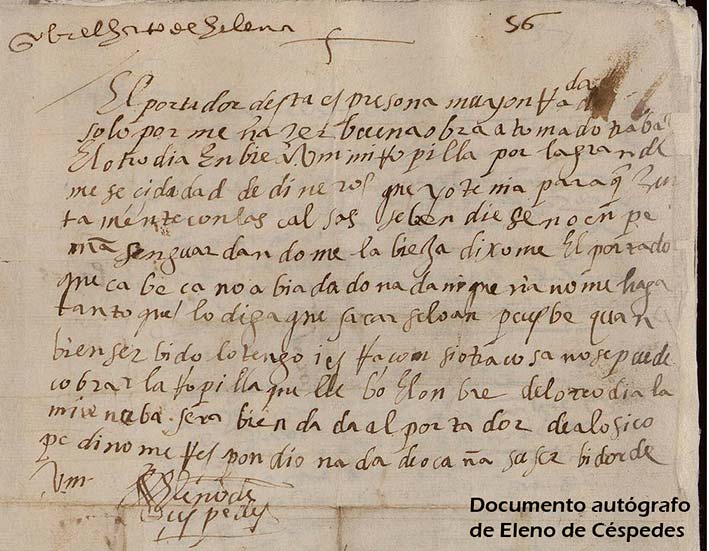 sobre el hurto de helena
56
El portador desta es presona muy onrrada
solo por me hazer buena obra a tomado traba
El otro dia Enbie a Vm mi rropilla por la grande
mesecidad de dineros que yo tenia para q
tamente con las calsas se bendiesen o
senguardandome la dixome El portado
que cabeca no abia dado nada ni queria no me haga
tanto que lo diga que sacarseloan pues be quan
bien serbido lo tengo i es ta si otra cosa no se puede
cobrar la rropilla que llebo El onbre del otro dia la
mia nueba sera bien dada al portador
pedi no me rrespondio nada de ocaña su serbidor de
Vm
Eleno de
Cespedes
Documento autógrafo
de Eleno de Céspedes